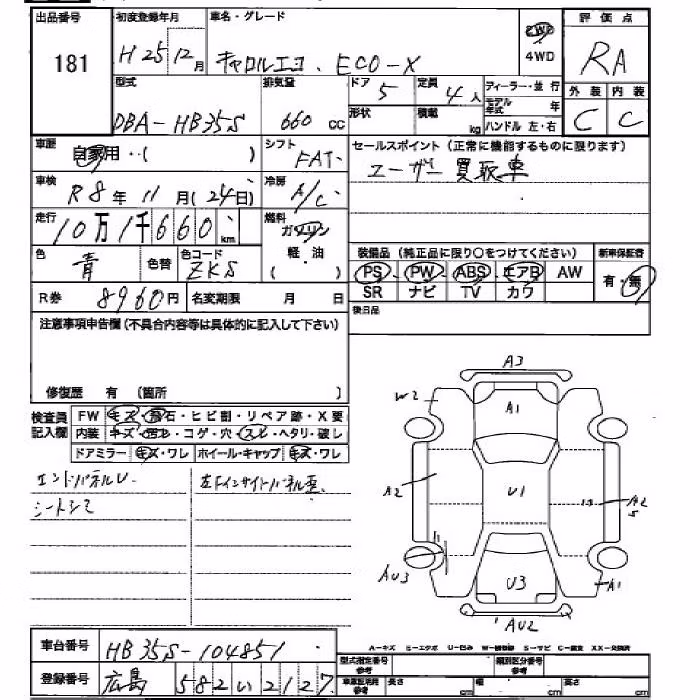 出品番号 初度登録年月 車名・グレード 評価点
181 H25 12月 キャロルエコ、ECO-X 2WD 4WD RA
型式 排気量 ドア 定員 ディーラー・並行 外装 内装
DBA-HB35S 660cc 5 4人 モデル年式 年 C C
形状 積載 kg ハンドル 左・右
車歴 自家用・・( ) シフト FAT セールスポイント(正常に機能するものに限ります)
ユーザー買取車
車検 R8年11月(24日) 冷房 A/C
走行 10万1千660km 燃料 ガソリン 軽・油 ( )
色 青 色替 色コード ZKS
装備品(純正品に限り○をつけてください) 新車保証書
PS PW ABS エアB AW 有・無
SR ナビ TV カワ
R券 8960円 名変期限 月 日 後日品
注意事項申告欄(不具合内容等は具体的に記入して下さい)
修復歴 有 (箇所 )
検査員記入欄 FW キズ・飛石・ヒビ割・リペア跡・X要
内装 キズ・汚レ・コゲ・穴・スレ・ヘタリ・破レ
ドアミラー キズ・ワレ ホイール・キャップ キズ・ワレ
エンドパネルU 左Fインサイドパネル歪
シートシミ
A3
W2 A1
A2 U1 A2 S
AU3 U3 A1
AU2
車台番号 HB35S-104851
登録番号 広島 582 い 2127
A-キズ E-エクボ U-凹み W-補修跡 S-サビ C-腐食 XX-交換済
型式指定番号 参考 類別区分番号 参考
長さ cm 幅 cm 高さ cm